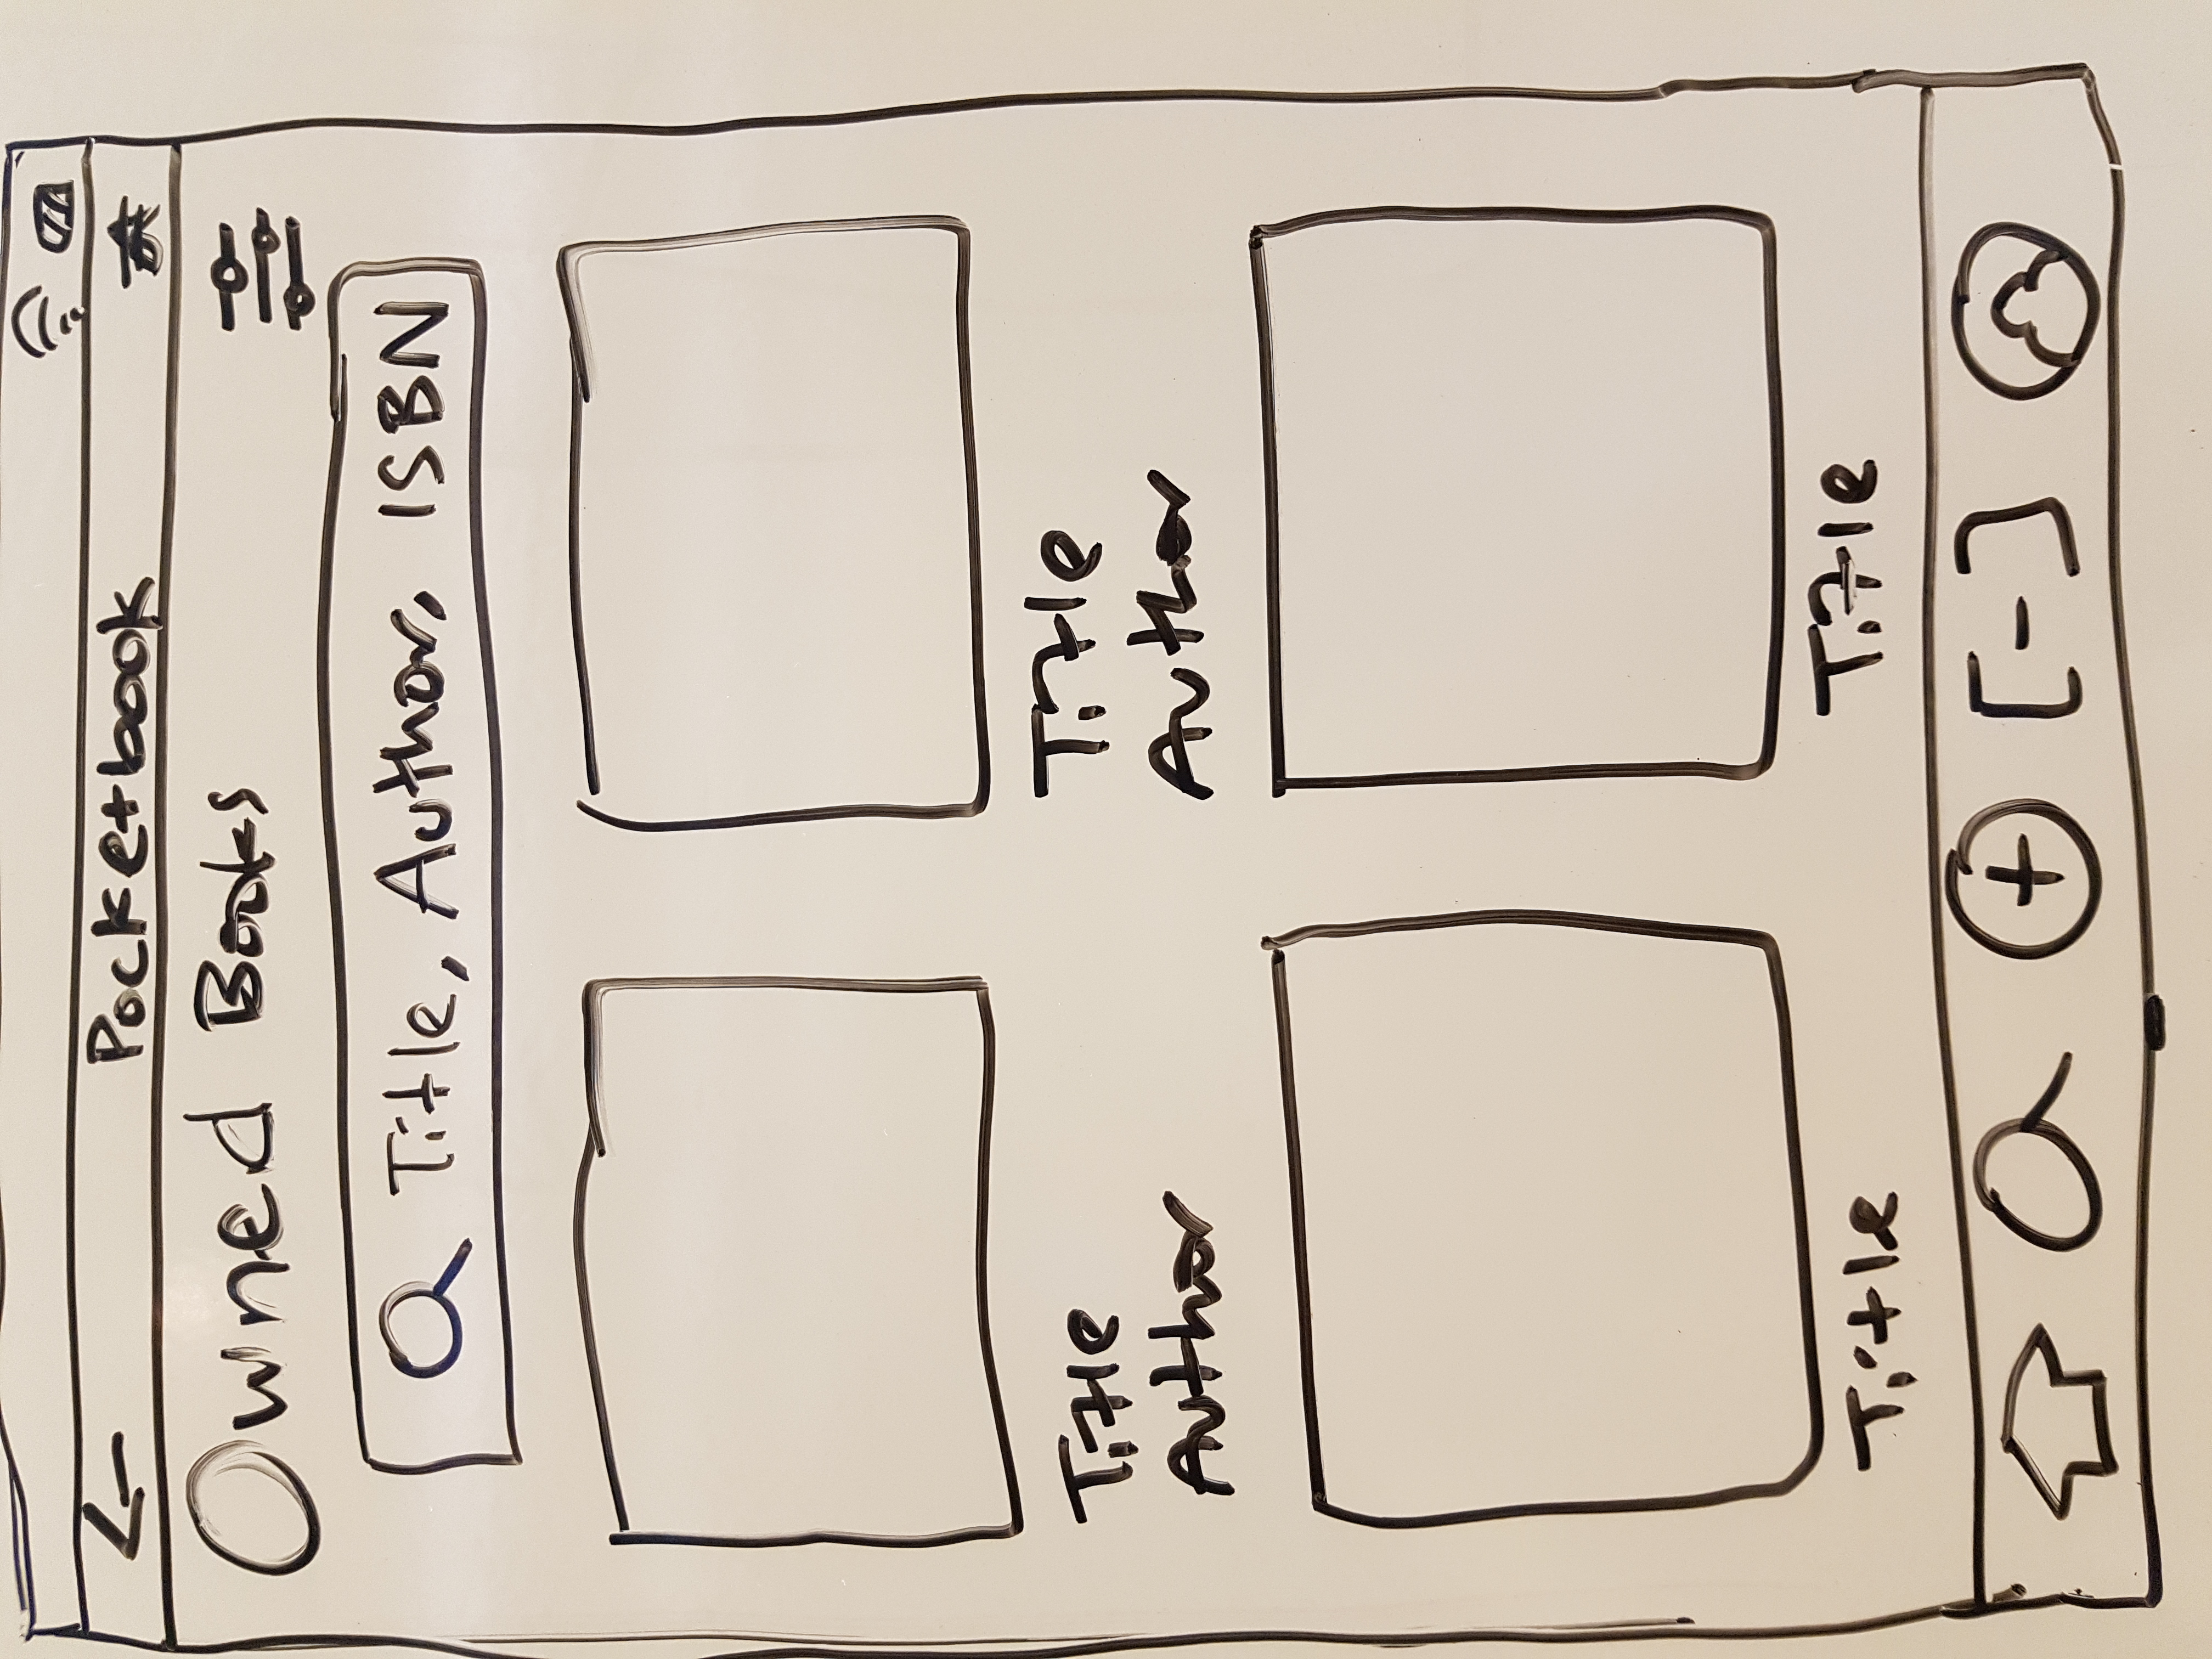 Pocketbook
Owned Books
Title, Author, ISBN
Title
Title
Author
Author
Title
Title